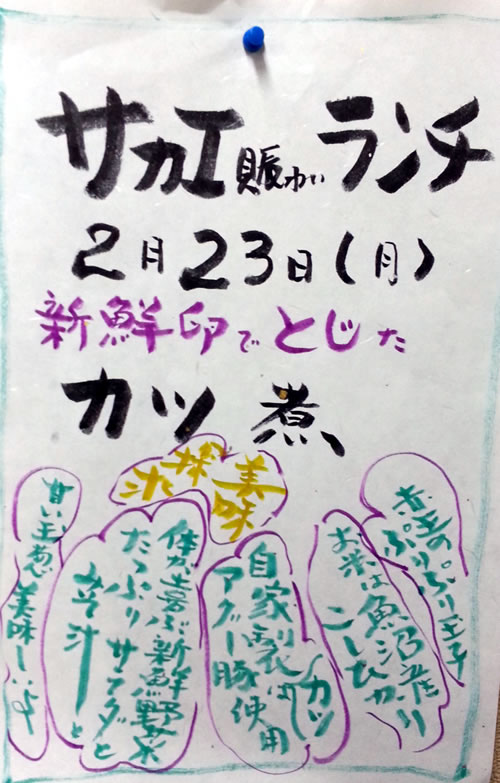 サカエ賑わいランチ
2月23日(月)
新鮮卵でとじた
カツ煮
美味
探求
赤玉のぷりぷり玉子
お米は魚沼産
こしひかり
自家製カツは
アグー豚使用
体が喜ぶ新鮮野菜
たっぷりサラダと
甘い玉ねぎ美味しいよ